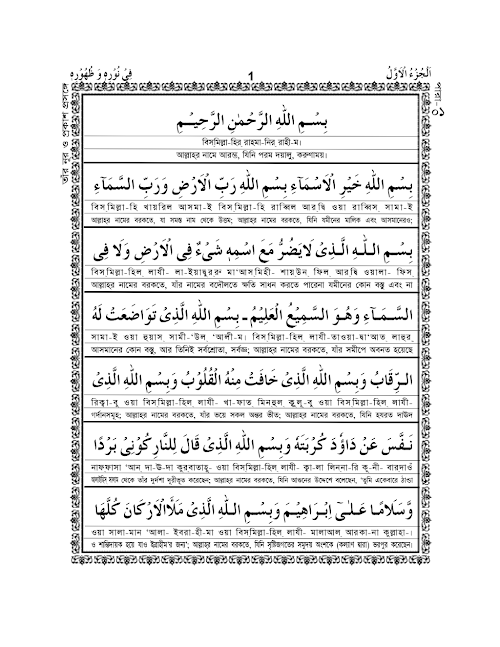 اَلْجُزْءُ الْاَوَّلُ
1
فِيْ نُوْرِهٖ وَ ظُهُوْرِهٖ
পারা- ০১
তাঁর নূর ও প্রকাশ প্রসঙ্গে
بِسْمِ اللهِ الرَّحْمٰنِ الرَّحِيْمِ
বিসমিল্লা-হির্ রাহমা-নির্ রাহী-ম।
আল্লাহর নামে আরম্ভ, যিনি পরম দয়ালু, করুণাময়।
بِسْمِ اللهِ خَيْرِ الْاَسْمَآءِ بِسْمِ اللهِ رَبِّ الْاَرْضِ وَرَبِّ السَّمَآءِ
বিস্‌মিল্লা-হি খায়রিল আসমা-ই বিস্‌মিল্লা-হি রাব্বিল আরদ্বি ওয়া রাব্বিস্ সামা-ই
আল্লাহর নামের বরকতে, যা সমস্ত নাম থেকে উত্তম; আল্লাহর নামের বরকতে, যিনি যমীনের মালিক এবং আসমানেরও;
بِسْمِ اللهِ الَّذِىْ لَايَضُرُّ مَعَ اسْمِهٖ شَىْءٌ فِى الْاَرْضِ وَلَا فِى
বিসমিল্লা-হিল লাযী- লা-ইয়াদ্বুররু মা'আসমিহী- শায়উন ফিল আরদ্বি ওয়ালা- ফিস্
আল্লাহর নামের বরকতে, যাঁর নামের বদৌলতে ক্ষতি সাধন করতে পারেনা যমীনের কোন বস্তু এবং না
السَّمَآءِ وَهُوَ السَّمِيْعُ الْعَلِيْمُ ـ بِسْمِ اللهِ الَّذِىْ تَوَاضَعَتْ لَهُ
সামা-ই ওয়া হুয়াস সামী-'উল 'আলী-ম। বিসমিল্লা-হিল লাযী-তাওয়া-দ্বা'আত্ লাহুর্
আসমানের কোন বস্তু, আর তিনিই সর্বশ্রোতা, সর্বজ্ঞ; আল্লাহর নামের বরকতে, যাঁর সমীপে অবনত হয়েছে
الرِّقَابُ وَبِسْمِ اللهِ الَّذِىْ خَافَتْ مِنْهُ الْقُلُوْبُ وَبِسْمِ اللهِ الَّذِىْ
রিক্বা-বু ওয়া বিসমিল্লা-হিল লাযী- খা-ফাত মিনহুল কুলূ-বু ওয়া বিসমিল্লা-হিল লাযী-
গর্দানসমূহ; আল্লাহর নামের বরকতে, যাঁর ভয়ে সকল অন্তর ভীত; আল্লাহর নামের বরকতে, যিনি হযরত দাউদ
نَفَّسَ عَنْ دَاوٗدَ كُرْبَتَهٗ وَبِسْمِ اللهِ الَّذِىْ قَالَ لِلنَّارِ كُوْنِىْ بَرْدًا
নাফ্‌ফাসা 'আন্ দা-ঊ-দা কুরবাতাহূ- ওয়া বিসমিল্লা-হিল লাযী- ক্বা-লা লিননা-রি কূ-নী- বারদাওঁ
থেকে তাঁর দুর্দশা দূরীভূত করেছেন; আল্লাহর নামের বরকতে, যিনি আগুনের উদ্দেশে বলেছেন, 'তুমি একেবারে ঠাণ্ডা
وَّسَلَامًا عَلٰىٓ اِبْرَاهِيْمَ وَبِسْمِ اللهِ الَّذِىْ مَلَأَ الْاَرْكَانَ كُلَّهَا
ওয়া সালা-মান 'আলা- ইবরা-হী-মা ওয়া বিসমিল্লা-হিল লাযী- মালাআল্ আরকা-না কুল্লাহা-।
ও শান্তিদায়ক হয়ে যাও ইব্রাহীম'র জন্য'; আল্লাহর নামের বরকতে, যিনি সৃষ্টিজগতের সমুদয় অংশকে (কল্যাণ দ্বারা) ভরপুর করেছেন।